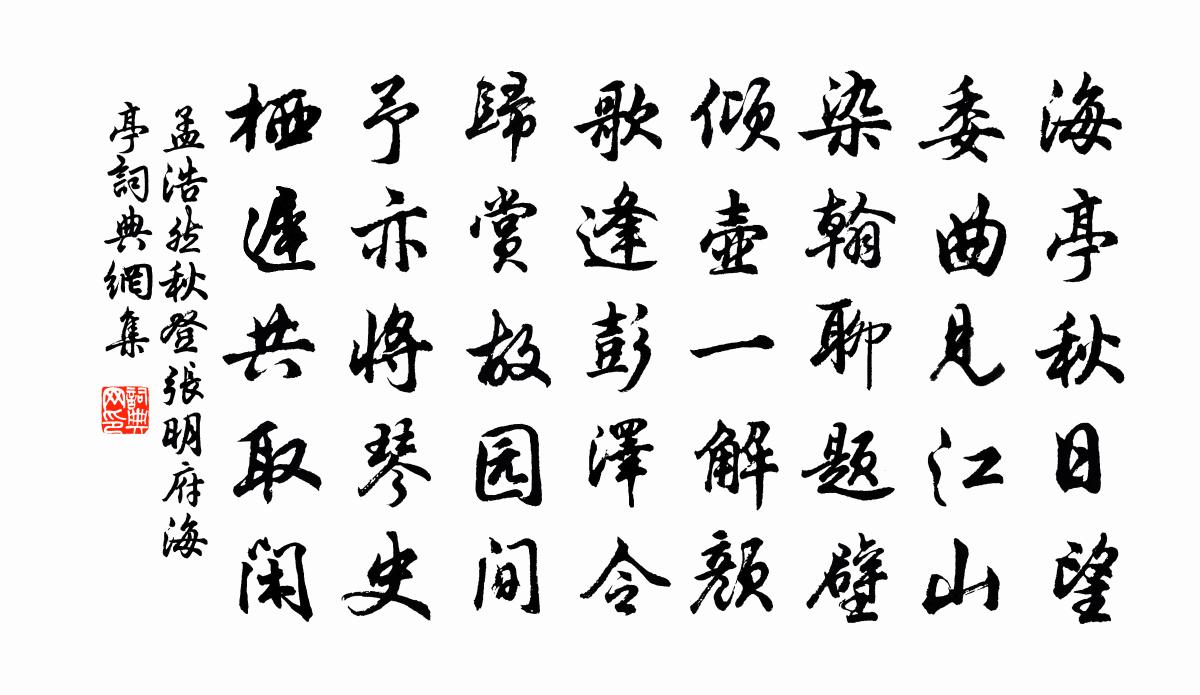 海亭秋日望
委曲見江山
染翰聊题壁
傾壺一解顔
歌逢彭澤令
歸賞故园间
予亦將琴史
栖遲共取闲
孟浩然秋登張明府海
亭詞典網集
詞典
网印